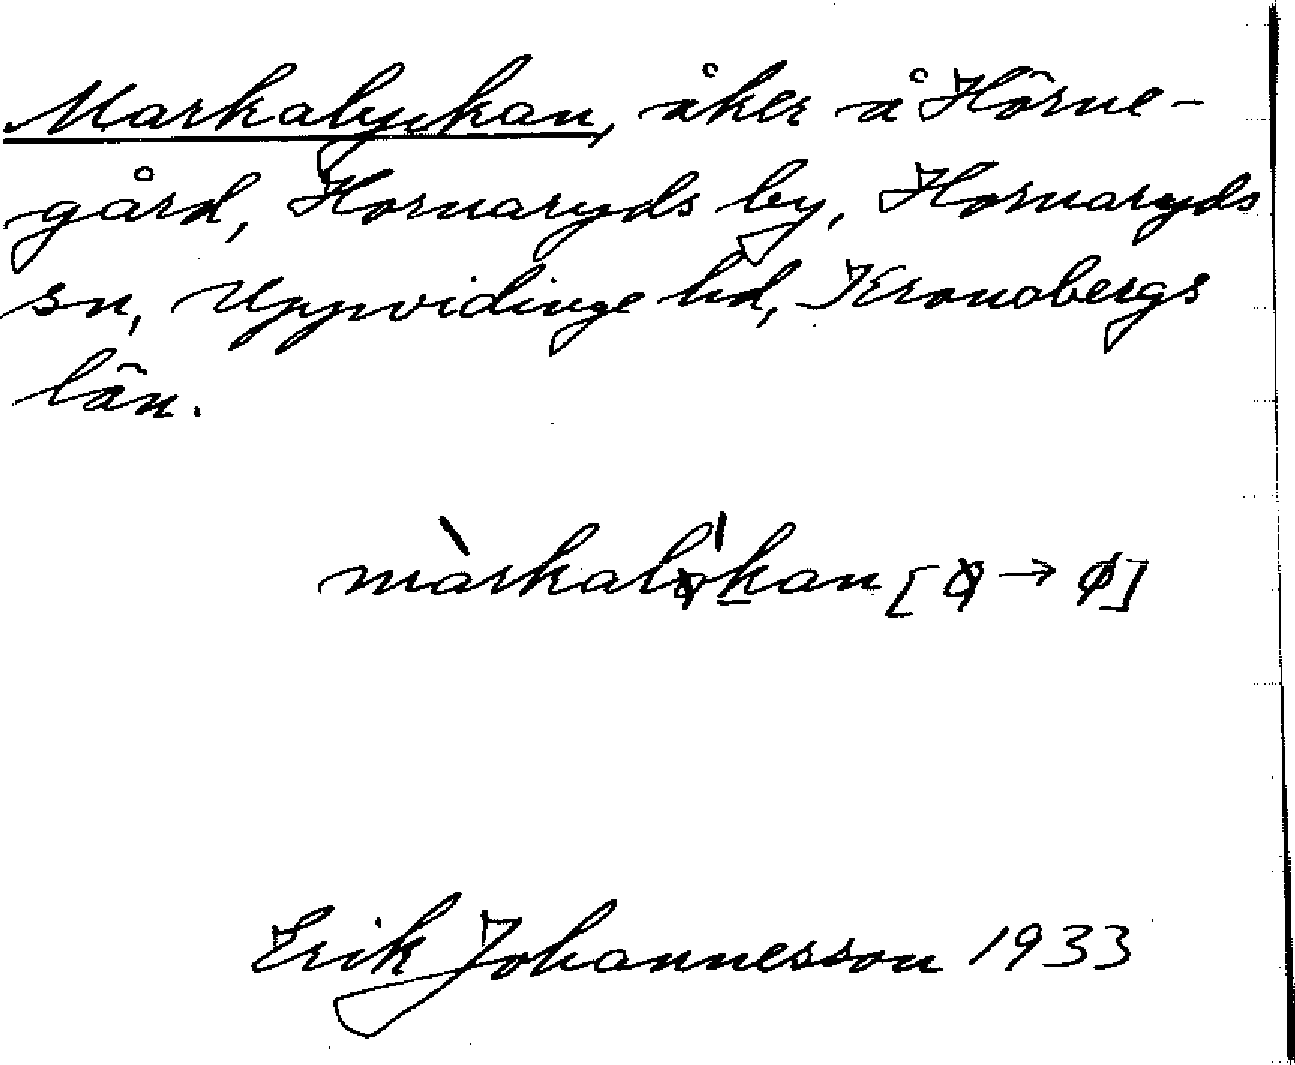 Markalyckan, åker å Hörne-
gård, Hornaryds by, Hornaryds
sn, Uppvidinge hd, Kronobergs
län.
[ → ø]
Erik Johannesson 1933